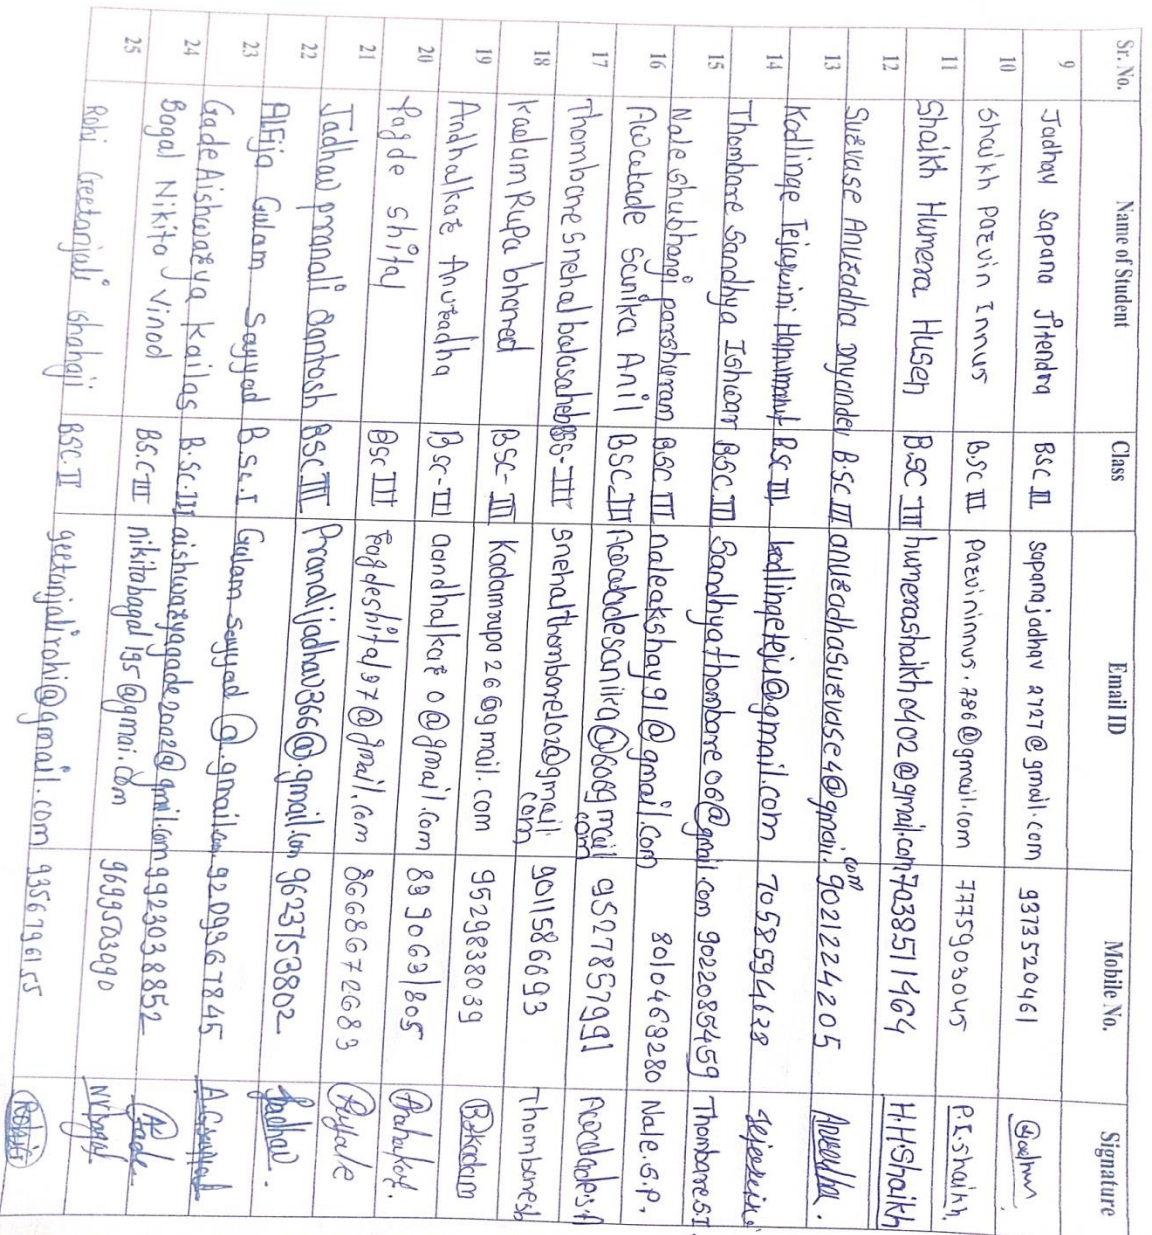 Sr. No. Name of Student Class Email ID Mobile No. Signature
9 Jadhav Sapana Jitendra BSC III sapanajadhav2727@gmail.com 9373520461
10 Shaikh Parvin Innus B.SC III parvininnus.786@gmail.com 7775903045 P.I.shaikh
11 Shaikh Humera Husen B.SC III humerashaikh0402@gmail.com 7038511464 H.H.Shaikh
12 Survase Anuradha Dnyandev B.SC III anuradhasurvase4@gmail.com 9021224205
13 Kodlinge Tejaswini Hanumant B.SC III kodlingeteju@gmail.com 7058594628
14 Thombare Sandhya Ishwar B.SC III Sandhyathombare06@gmail.com 9022085459 Thombare.S.I.
15 Nale shubhangi parshuram B.SC III naleakshay91@gmail.com 8010469280 Nale.S.P.
16 Awatade Sanika Anil BSC III Awatadesanika@606gmail.com 9527857991
17 Thombare Snehal balasaheb BSC-III snehalthombare102@gmail.com 9011586693
18 Kadam Rupa bharned BSC-III Kadamrupa26@gmail.com 9529838039
19 Andhalkar Anuradha BSC-III aandhalkar0@gmail.com 8990691805
20 Pagde shital BSC III Pagdeshital97@gmail.com 8668672683
21 Jadhav pranali Santosh BSC III Pranalijadhav366@.gmail.com 9623753802 Jadhav.
22 Alfija Gulam Sayyad B.sc.I Gulam sayyad@.gmail.com 9209367845
23 Gade Aishwarya Kailas B.SC.III aishwaryagade2002@gmail.com 9923038852 Gade
24 Bagal Nikita Vinod BS.C-III nikitabagal155@gmai.com 9699503090
25 Rohi Geetanjali shahaji BSC.II geetanjalirohi@gmail.com 9356796155